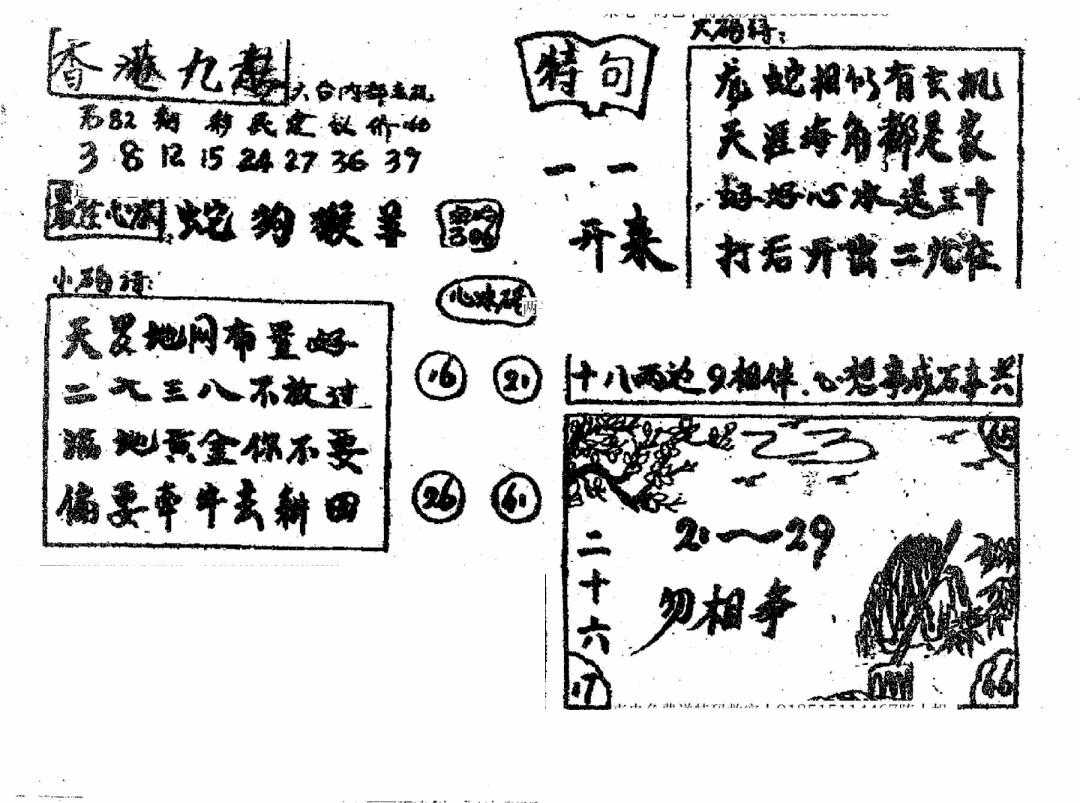 香港九龍
六合内部玄机
第82期 彩民定 议价40
3 8 12 15 24 27 36 39
蛇狗猴羊
小码诗:
天罗地网布置好
二七三八不放过
满地黄金你不要
偏要牵牛去耕田
心水码
16 21
26 61
特句
一一
开来
大码诗:
龙蛇相似有玄机
天涯海角都是家
好好心水送三十
打后开出二九在
十八两边9相伴、心想事成
二十六
21~29
勿相争
17
66